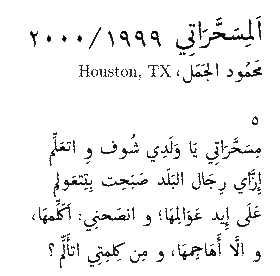 اَلمِسَحَّرَاتِي ١٩٩٩/٢٠٠٠
مَحَمُود الجَمَل، Houston, TX
٥
مِسَحَّرَاتِي يَا وَلَدِي شُوف وِ اتعَلِّم
إِزَّاي رِجَال البَلَد صَبَحِت بِتِتعَولِم
عَلَى إِيد عَوَالِمهَا؛ و انصَحنِي: أَكَلِّمهَا،
و الَّا أَهَاجِمهَا، و مِن كِلمِتِي اتأَلِّم؟